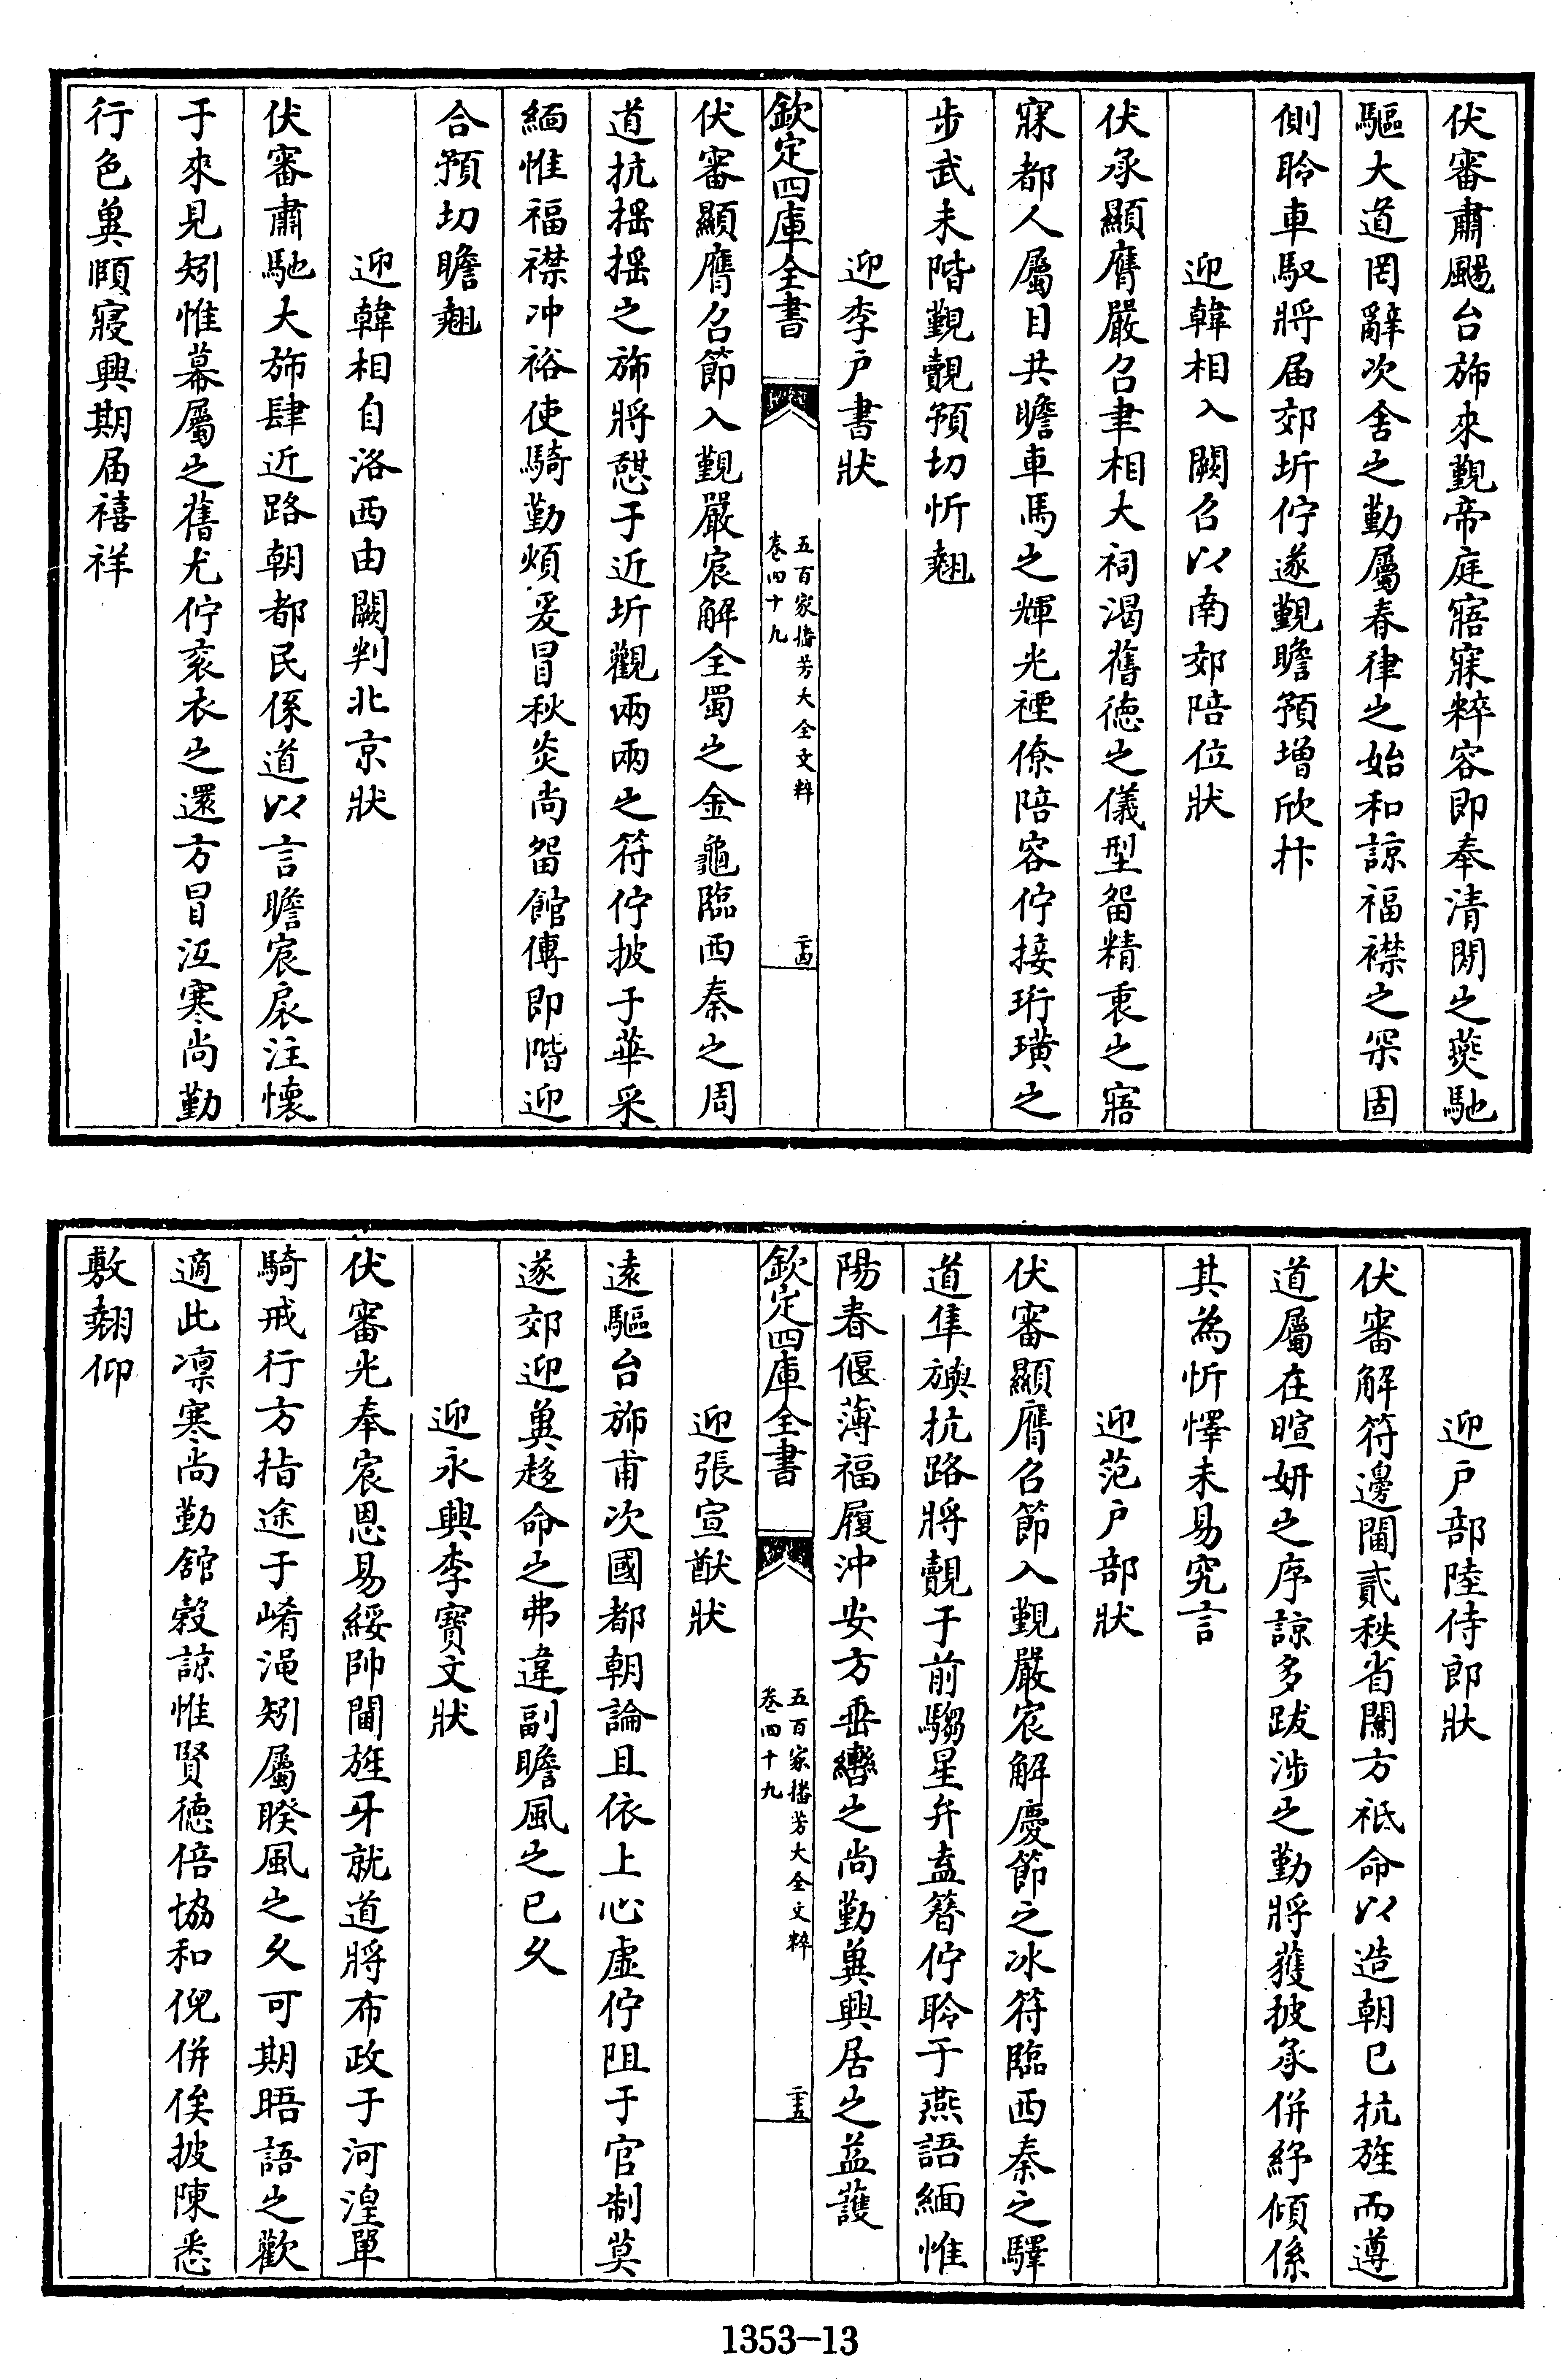 伏審肅颺台斾來覲帝庭寤寐粹容即奉清閒之燕馳
驅大道罔辭次舍之勤屬春律之始和諒福襟之罙固
側聆車馭將届郊圻佇遂覲瞻預增欣抃
迎韓相入闕召以南郊陪位狀
伏承顯膺嚴召聿相大祠渴舊徳之儀型畱精衷之寤
寐都人屬目共瞻車馬之輝光禋僚陪容佇接珩璜之
步武未階覲覿預切忻翹
迎李户書狀
欽定四庫全書
五百家播芳大全文粹
卷四十九
二十四
伏審顯膺召節入覲嚴宸解全蜀之金龜臨西秦之周
道抗摇摇之斾將憇于近圻觀兩兩之符佇披于華采
緬惟福襟冲裕使騎勤煩爰冒秋炎尚畱館傳即階迎
合預切瞻翹
迎韓相自洛西由闕判北京狀
伏審肅馳大斾肆近路朝都民係道以言瞻宸扆注懷
于來見矧惟幕屬之舊尤佇衮衣之還方冒沍寒尚勤
行色冀頤寢興期届禧祥
迎户部陸侍郎狀
伏審解符邊閫貳秩省闈方祗命以造朝已抗旌而遵
道屬在暄妍之序諒多跋涉之勤將獲披承併紓傾係
其為忻懌未易究言
迎范户部狀
伏審顯膺召節入覲嚴宸解慶節之冰符臨西秦之驛
道隼旟抗路將覿于前騶星弁盍簪佇聆于燕語緬惟
陽春偃薄福履沖安方垂轡之尚勤冀興居之益護
欽定四庫全書
五百家播芳大全文粹
卷四十九
二十五
迎張宣猷狀
遠驅台斾甫次國都朝論且依上心虛佇阻于官制莫
遂郊迎冀趍命之弗違副瞻風之已久
迎永興李寳文狀
伏審光奉宸恩易綏帥閫旌牙就道將布政于河湟單
騎戒行方指途于崤渑矧屬睽風之久可期晤語之歡
適此凛寒尚勤舘穀諒惟賢徳倍協和倪併俟披陳悉
敷翹仰
1353-13